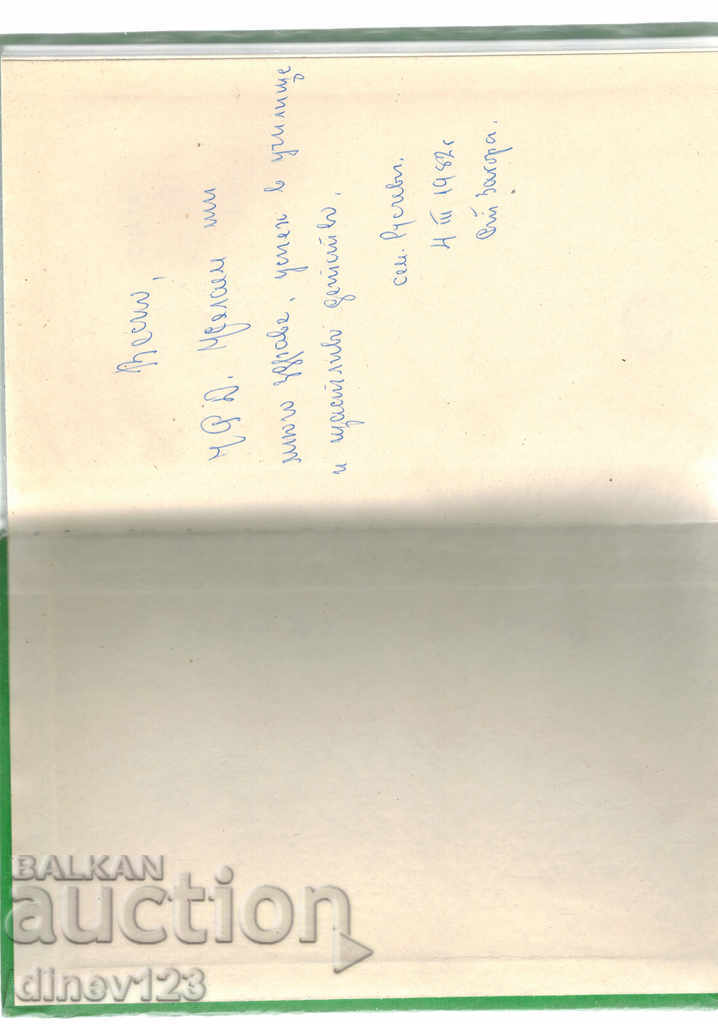 Весио,
ЧРД. Желаем ти
много здраве, успех в училище
и щастливо детство.
сем. Русеви.
4 III 1982 г
Ст. Загора.
BALKAN
auction
dinev123